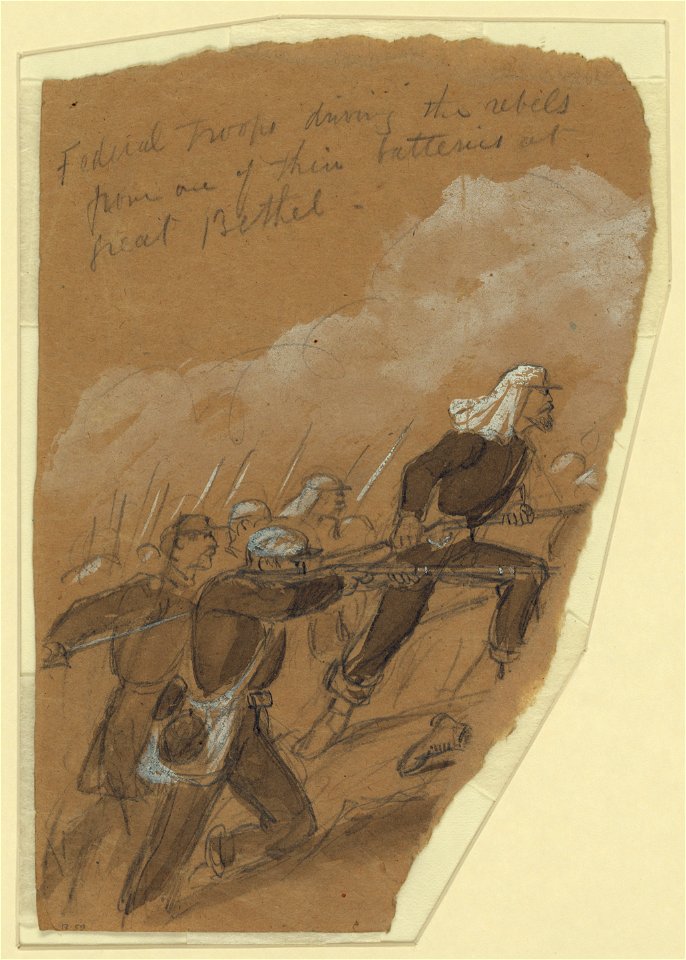 Federal Troops driving the rebels
from one of thier batteries at
great Bethel -